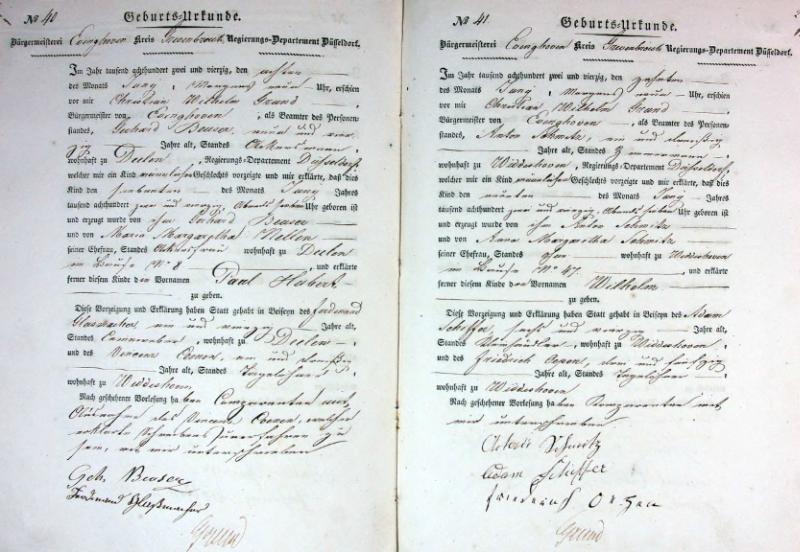 No 40
Geburts-Urkunde.
Bürgermeisterei Evinghoven Kreis Grevenbroich Regierungs-Departement Düsseldorf.
Im Jahr tausend achthundert zwei und vierzig, den achten
des Monats Juny, Morgens neun Uhr, erschien
vor mir Christian Wilhelm Grund
Bürgermeister von Evinghoven, als Beamter des Personen-
standes, Gerhard , neun und vier-
zig Jahre alt, Standes Ackersmann,
wohnhaft zu Deelen, Regierungs-Departement Düsseldorf,
welcher mir ein Kind männlichen Geschlechts vorzeigte und mir erklärte, daß dies
Kind den siebenten des Monats Juny Jahres
tausend achthundert zwei und vierzig, Abends sieben Uhr geboren ist
und erzeugt wurde von ihm Gerhard
und von Maria Margaretha Nellen
seiner Ehefrau, Standes Ackersfrau wohnhaft zu Deelen
im Hause No 8, und erklärte
ferner diesem Kinde den Vornamen Paul Hubert
zu geben.
Diese Vorzeigung und Erklärung haben Statt gehabt in Beiseyn des Ferdinand
ein und vierzig Jahre alt,
Standes , wohnhaft zu Deelen
und des Vincenz , ein und dreißig
Jahre alt, Standes Tagelöhner
wohnhaft zu
Nach geschehener Vorlesung haben Comparenten mit
Ausnahme des Vincenz , welcher
erklärte Schreibens unerfahren zu
sein, mit mir unterschrieben
Gerh.
Ferdinand
Grund
No 41
Geburts-Urkunde.
Bürgermeisterei Evinghoven Kreis Grevenbroich Regierungs-Departement Düsseldorf.
Im Jahr tausend achthundert zwei und vierzig, den zehnten
des Monats Juny, Morgens neun Uhr, erschien
vor mir Christian Wilhelm Grund
Bürgermeister von Evinghoven, als Beamter des Personen-
standes, Anton Schmitz, ein und dreißig
Jahre alt, Standes Zimmermann
wohnhaft zu Widdeshoven, Regierungs-Departement Düsseldorf,
welcher mir ein Kind männlichen Geschlechts vorzeigte und mir erklärte, daß dies
Kind den neunten des Monats Juny Jahres
tausend achthundert zwei und vierzig, Abends sieben Uhr geboren ist
und erzeugt wurde von ihm Anton Schmitz
und von Anna Margaretha Schmitz
seiner Ehefrau, Standes ohne wohnhaft zu Widdeshoven
im Hause No 47, und erklärte
ferner diesem Kinde den Vornamen Wilhelm
zu geben.
Diese Vorzeigung und Erklärung haben Statt gehabt in Beiseyn des Adam
Schiffer, sechs und vierzig Jahre alt,
Standes , wohnhaft zu Widdeshoven
und des Friedrich , und fünfzig
Jahre alt, Standes Tagelöhner
wohnhaft zu Widdeshoven
Nach geschehener Vorlesung haben Komparenten mit
mir unterschrieben
Anton Schmitz
Adam Schiffer
Friederich
Grund